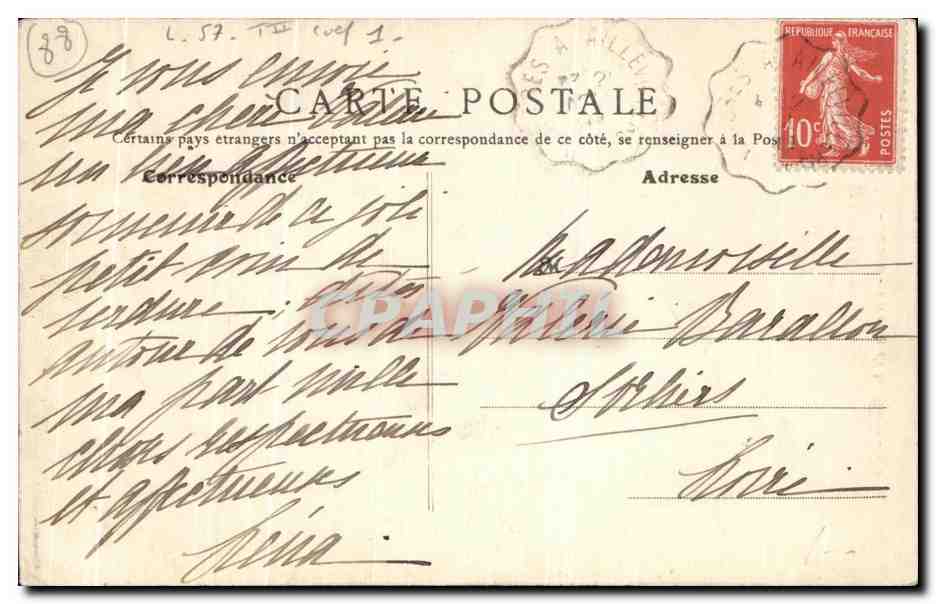 88
L. 57. TIII coef 1.
CARTE POSTALE
Certains pays étrangers n'acceptant pas la correspondance de ce côté, se renseigner à la Pos
Correspondance
Adresse
Je vous envoie
ma chère
un bien affectueux
souvenir de ce joli
petit coin de
verdure. dites
autour de vous de
ma part mille
choses respectueuses
et affectueuses
Léna.
Mademoiselle
Valérie Barallon
St
Loire
ES A AILLEV
RÉPUBLIQUE FRANÇAISE
10c
POSTES
CPAPHIL